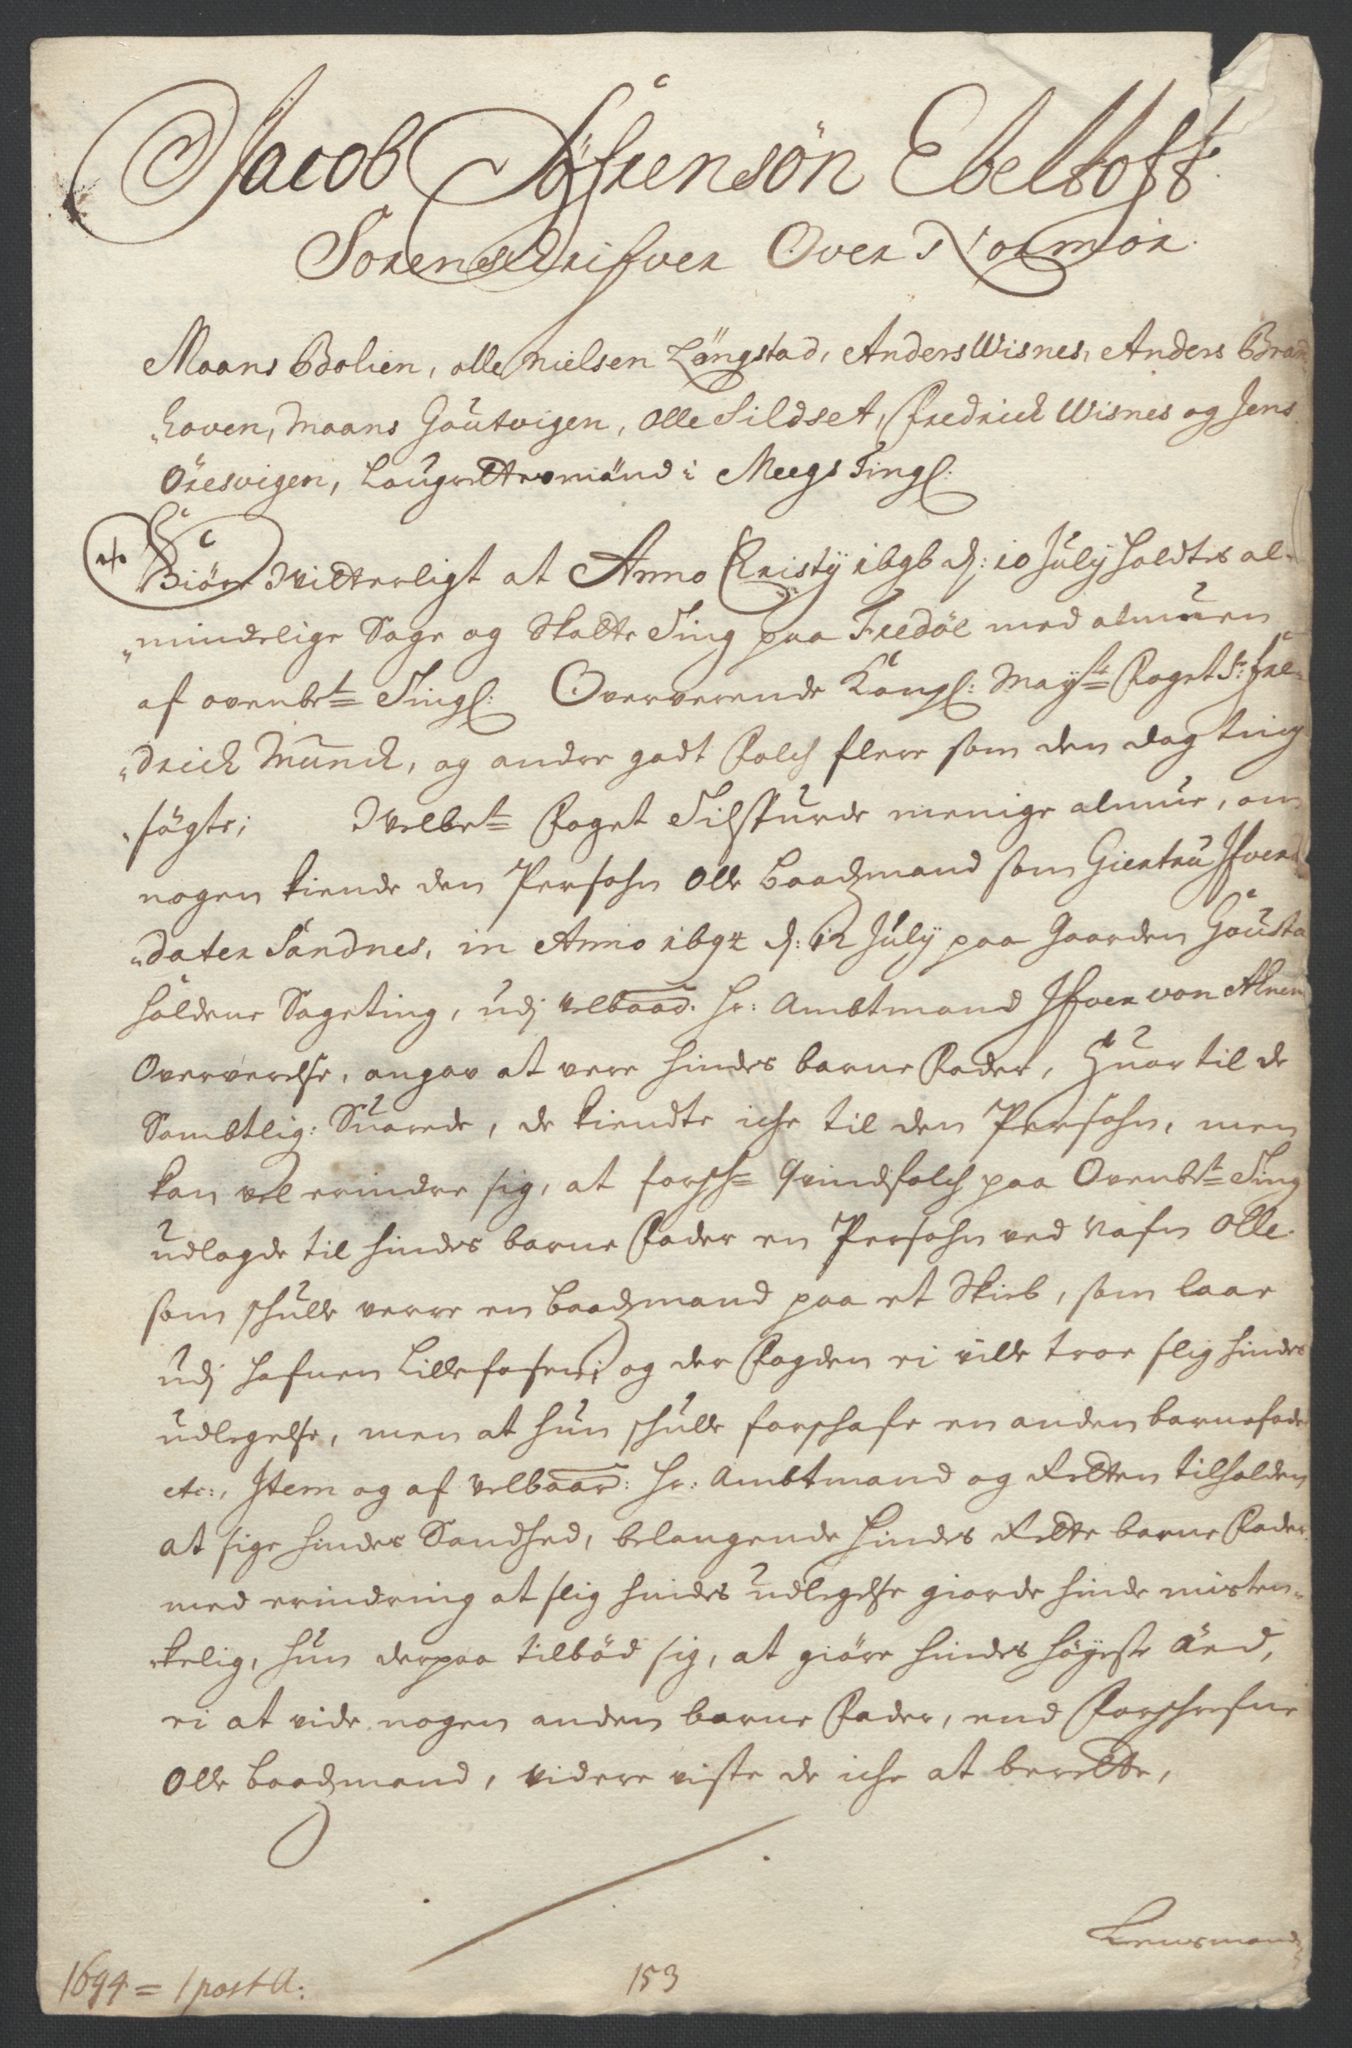 Jacob Søfrensøn Ebeltoft
Sorenschrifver Over Normør.
Maans Bolien, olle Nielsen Längstad, Anders Wisnes, Anders
hoven, Maans Goutvigen, Olle Sildset, Fredrich Wisnes og Jens
Øresvigen, Laugrettesmænd i Meegs Tingl:
Giør Vitterligt at Anno Christy 1696 d: 10 July holdtes al-
mindelige Sage og Skatte Ting paa Fredøe med almuen
af ovenbte Tingl: Oververende Kongl: Mayts Foget Sr: Fre-
drich Munch, og andre godt Folch flere som den dag ting
søgte; Velbte Foget Tilspurde menige almue, om
nogen kiende den Persohn Olle Baadzmand som Giertru Ifvers
dater Sandnes, in Anno 1694 d: 12 July paa Gaarden Gousta
holdene Sageting, udj velbaar: Hr: Ambtmand Ifver von Ahnen
Oververelse, angav at vere hindes barne Fader, Huor til de
Sambtlig: Suarede, de kiendte iche til den Persohn, men
kan vel erindre sig, at forschne qvindfolch paa Ovenbte Ting
udlagde til hindes barne Fader en Persohn ved Nafn Olle
som schulle verre en baadzmand paa et Skieb, som laae
udj hafnen Lillefosen; og der Fogden ei ville troe slig hindes
udlegelse, men at hun schulle forschafe en anden barnefader
etc:, Item og af velbaar: Hr: Ambtmand og Retten tilholden
at sige hindes Sandhed, belangende hindes Rette barne Fader,
med erindring at slig hindes udlegelse giorde hinde misten-
kelig, hun derpaa tilbød sig, at giøre hindes høyeste Æed,
ei at vide nogen anden barne Fader, end Forschrefne
Olle baadzmand, videre viste de iche at berette,
Lensmand
1694 = 1 post A:
153